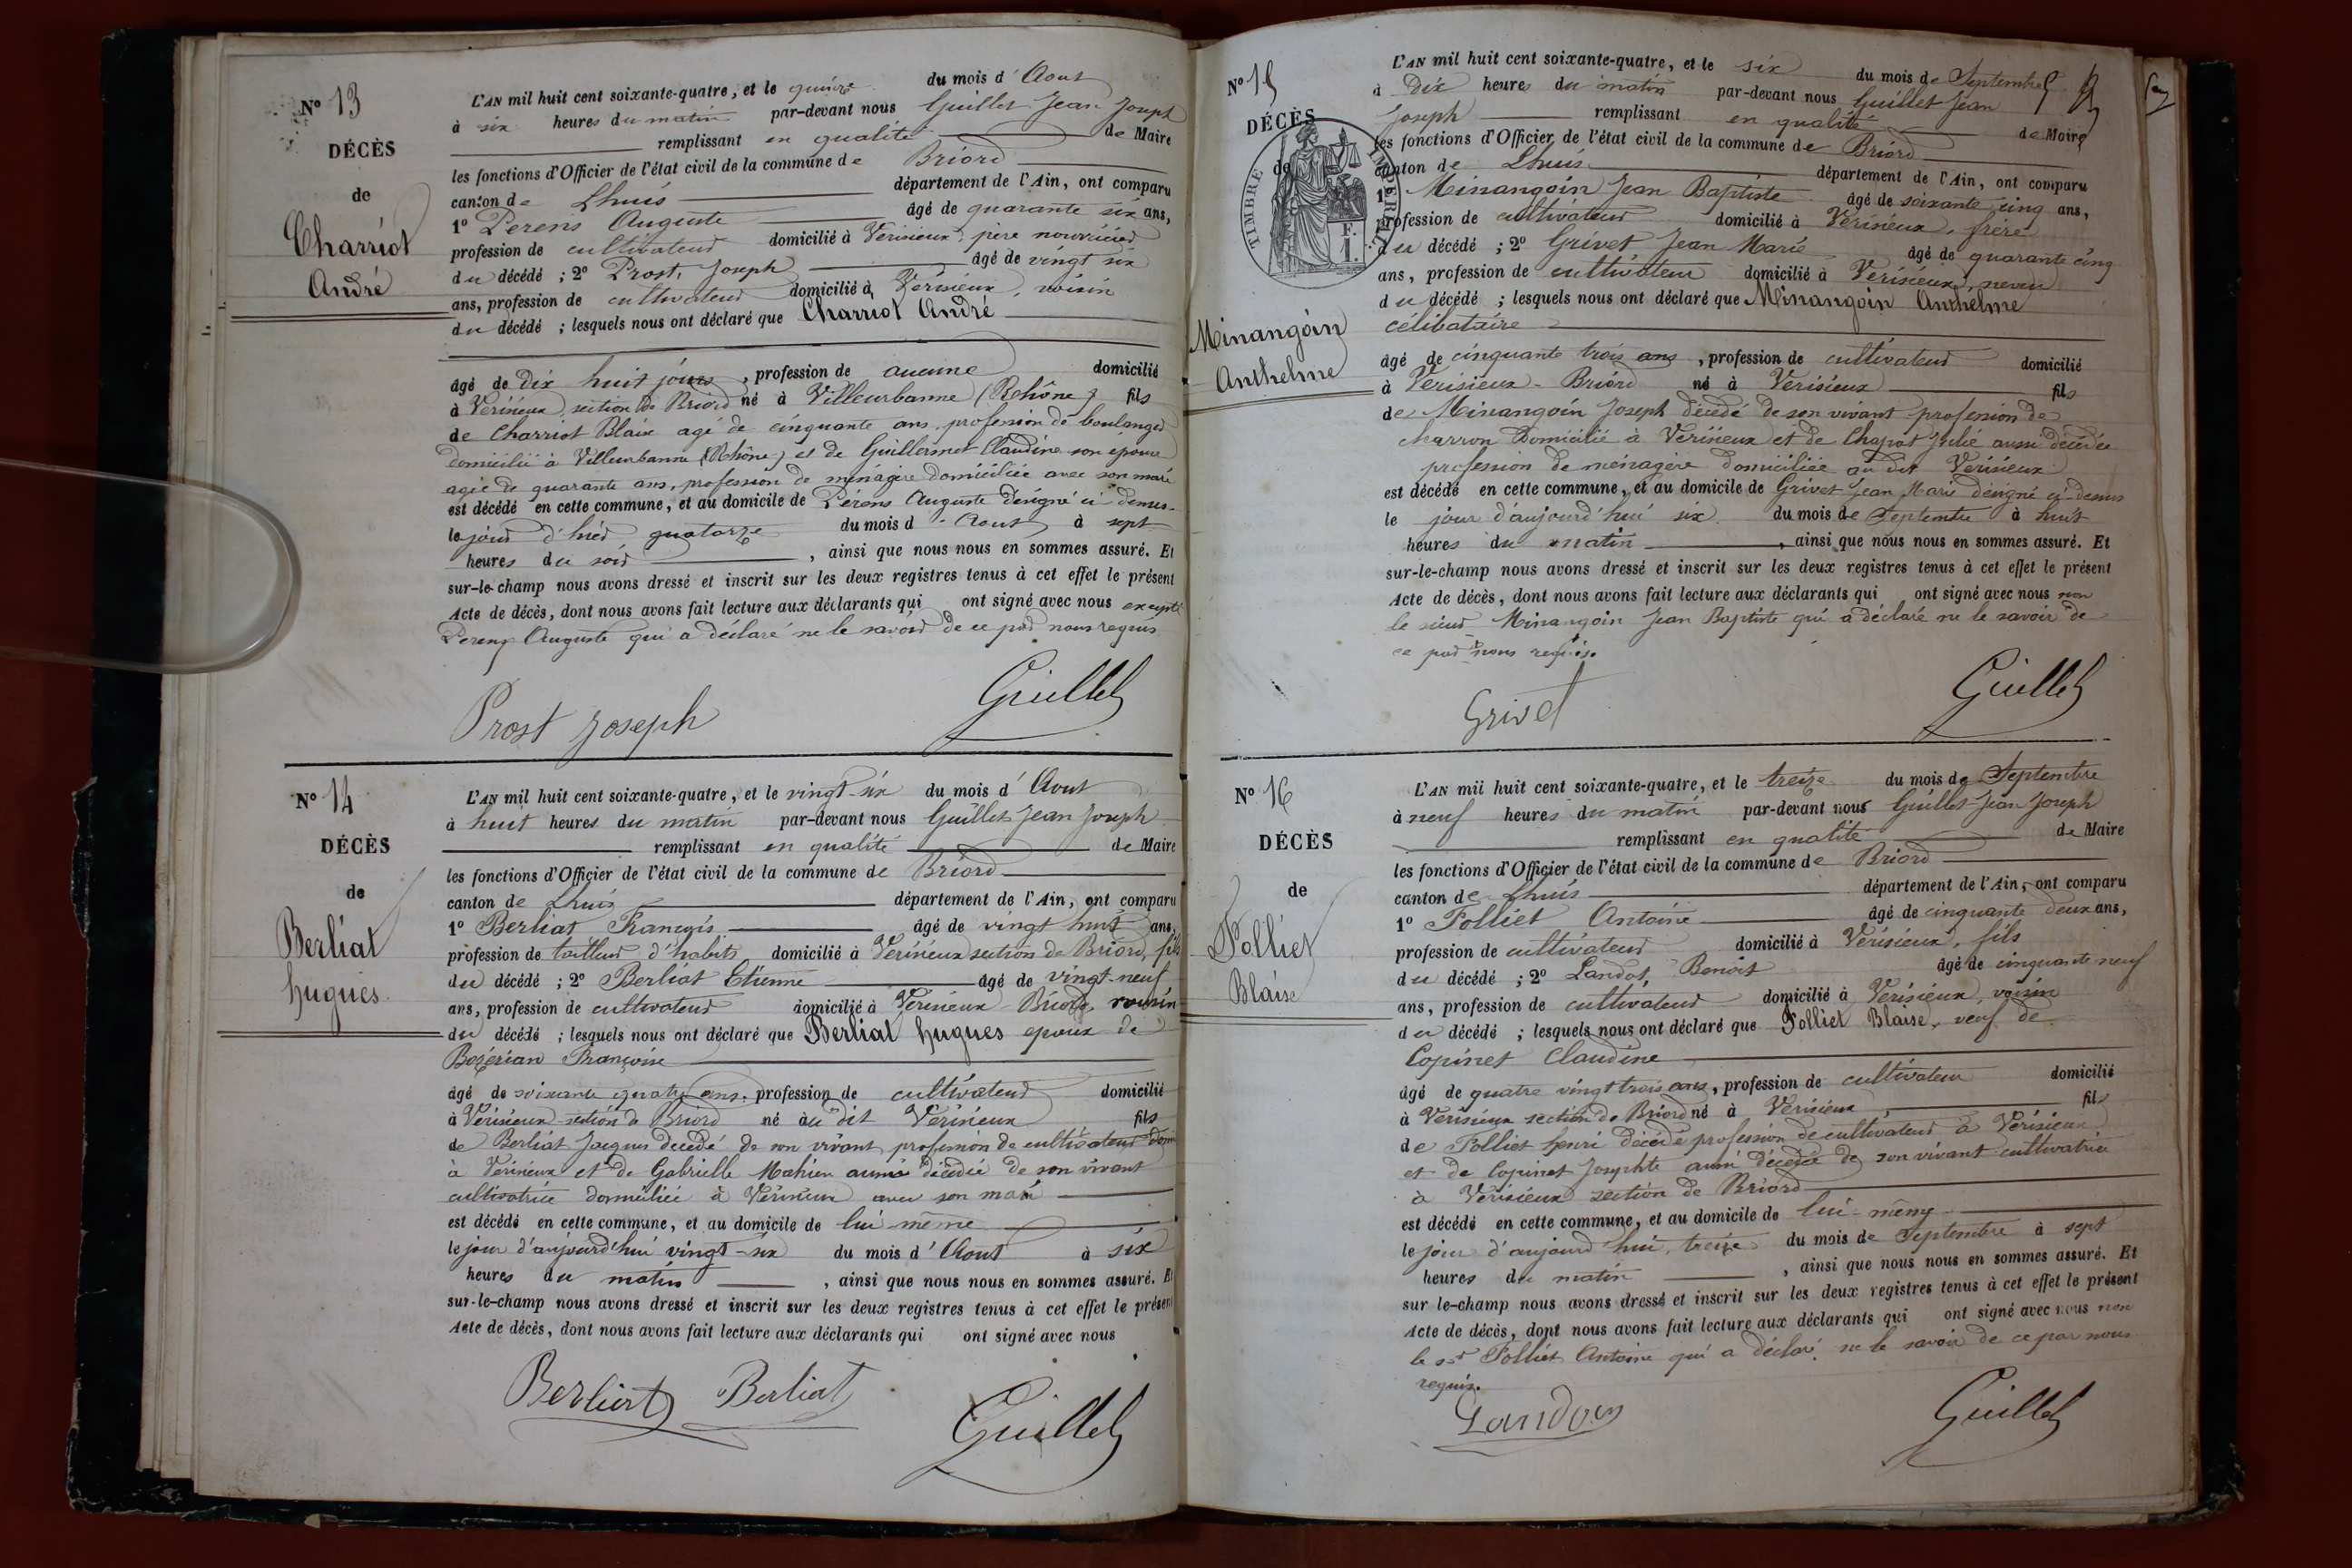 N° 13
DÉCÈS
de
Charriot
André
L'AN mil huit cent soixante-quatre, et le quinze du mois d'Aout
à six heures du matin par-devant nous Guillet Jean Joseph
remplissant en qualité de Maire
les fonctions d'Officier de l'état civil de la commune de Briord
canton de Lhuis département de l'Ain, ont comparu
1° Perens Auguste âgé de quarante six ans,
profession de cultivateur domicilié à Verisieux, père nourricier
du décédé ; 2° Prost, Joseph âgé de vingt six
ans, profession de cultivateur domicilié à Verisieux, voisin
du décédé ; lesquels nous ont déclaré que Charriot André
âgé de dix huit jours, profession de aucune domicilié
à Verisieux, section de Briord né à Villeurbanne (Rhône) fils
de Charriot Blaise agé de cinquante ans, profession de boulanger
domicilié à Villeurbanne (Rhône) et de Guillermet Claudine son épouse
agée de quarante ans, profession de ménagère domiciliée avec son mari
est décédé en cette commune, et au domicile de Pérens Auguste désigné ci-dessus
le jour d'hier quatorze du mois d'Aout à sept
heures du soir, ainsi que nous nous en sommes assuré. Et
sur-le-champ nous avons dressé et inscrit sur les deux registres tenus à cet effet le présent
Acte de décès, dont nous avons fait lecture aux déclarants qui ont signé avec nous excepté
Perens Auguste qui a déclaré ne le savoir de ce par nous requis
Prost Joseph Guillet
N° 14
DÉCÈS
de
Berliat
hugues
L'AN mil huit cent soixante-quatre, et le vingt-six du mois d'Aout
à huit heures du matin par-devant nous Guillet Jean Joseph
remplissant en qualité de Maire
les fonctions d'Officier de l'état civil de la commune de Briord
canton de Lhuis département de l'Ain, ont comparu
1° Berliat François âgé de vingt huit ans,
profession de tailleur d'habits domicilié à Verisieux section de Briord, fils
du décédé ; 2° Berliat Etienne âgé de vingt-neuf
ans, profession de cultivateur domicilié à Verisieux Briord, voisin
du décédé ; lesquels nous ont déclaré que Berliat hugues epoux de
Bozérian Françoise
âgé de soixante quatre ans, profession de cultivateur domicilié
à Vérisieux section de Briord né au dit Verisieux fils
de Berliat Jacques decedé de son vivant profession de cultivateur dom
à Verisieux et de Gabrielle Mathieu aussi décédée de son vivant
cultivatrice domiciliée à Vérisieux avec son mari
est décédé en cette commune, et au domicile de lui même
le jour d'aujourd'hui vingt-six du mois d'Aout à six
heures du matin, ainsi que nous nous en sommes assuré. Et
sur-le-champ nous avons dressé et inscrit sur les deux registres tenus à cet effet le présent
Acte de décès, dont nous avons fait lecture aux déclarants qui ont signé avec nous
Berliat Berliat Guillet
N° 15
DÉCÈS
de
Minangoin
Anthelme
TIMBRE IMPERIAL
F.
1.
L'AN mil huit cent soixante-quatre, et le six du mois de Septembre
à Dix heures du matin par-devant nous Guillet Jean
Joseph remplissant en qualité de Maire
les fonctions d'Officier de l'état civil de la commune de Briord
canton de Lhuis département de l'Ain, ont comparu
1° Minangoin Jean Baptiste âgé de soixante cinq ans,
profession de cultivateur domicilié à Verisieux, frère
du décédé ; 2° Grivet Jean Marie âgé de quarante cinq
ans, profession de cultivateur domicilié à Verisieux, neveu
du décédé ; lesquels nous ont déclaré que Minangoin Anthelme
célibataire
âgé de cinquante trois ans, profession de cultivateur domicilié
à Verisieux - Briord né à Verisieux fils
de Minangoin Joseph décédé de son vivant profession de
charron Domicilié à Verisieux et de Chapot Julie aussi décédée
profession de ménagère domiciliée au dit Verisieux
est décédé en cette commune, et au domicile de Grivet Jean Marie désigné ci-dessus
le jour d'aujourd'hui six du mois de Septembre à huit
heures du matin, ainsi que nous nous en sommes assuré. Et
sur-le-champ nous avons dressé et inscrit sur les deux registres tenus à cet effet le présent
Acte de décès, dont nous avons fait lecture aux déclarants qui ont signé avec nous non
le sieur Minangoin Jean Baptiste qui a déclaré ne le savoir de
ce par nous requis.
Grivet Guillet
N° 16
DÉCÈS
de
Folliet
Blaise
L'AN mil huit cent soixante-quatre, et le treize du mois de Septembre
à neuf heures du matin par-devant nous Guillet Jean Joseph
remplissant en qualité de Maire
les fonctions d'Officier de l'état civil de la commune de Briord
canton de Lhuis département de l'Ain, ont comparu
1° Folliet Antoine âgé de cinquante deux ans,
profession de cultivateur domicilié à Vérisieux, fils
du décédé ; 2° Landot, Benoit âgé de cinquante neuf
ans, profession de cultivateur domicilié à Verisieux, voisin
du décédé ; lesquels nous ont déclaré que Folliet Blaise, veuf de
Copinet Claudine
âgé de quatre vingt trois ans, profession de cultivateur domicilié
à Verisieux section de Briord né à Verisieux fils
de Folliet henri décédé profession de cultivateur à Vérisieux
et de Copinet Josephte aussi décédée de son vivant cultivatrice
à Vérisieux section de Briord
est décédé en cette commune, et au domicile de lui-même
le jour d'aujourd'hui, treize du mois de Septembre à sept
heures du matin, ainsi que nous nous en sommes assuré. Et
sur le-champ nous avons dressé et inscrit sur les deux registres tenus à cet effet le présent
Acte de décès, dont nous avons fait lecture aux déclarants qui ont signé avec nous non
le sr Folliet Antoine qui a déclaré ne le savoir de ce par nous
requis.
Landon Guillet